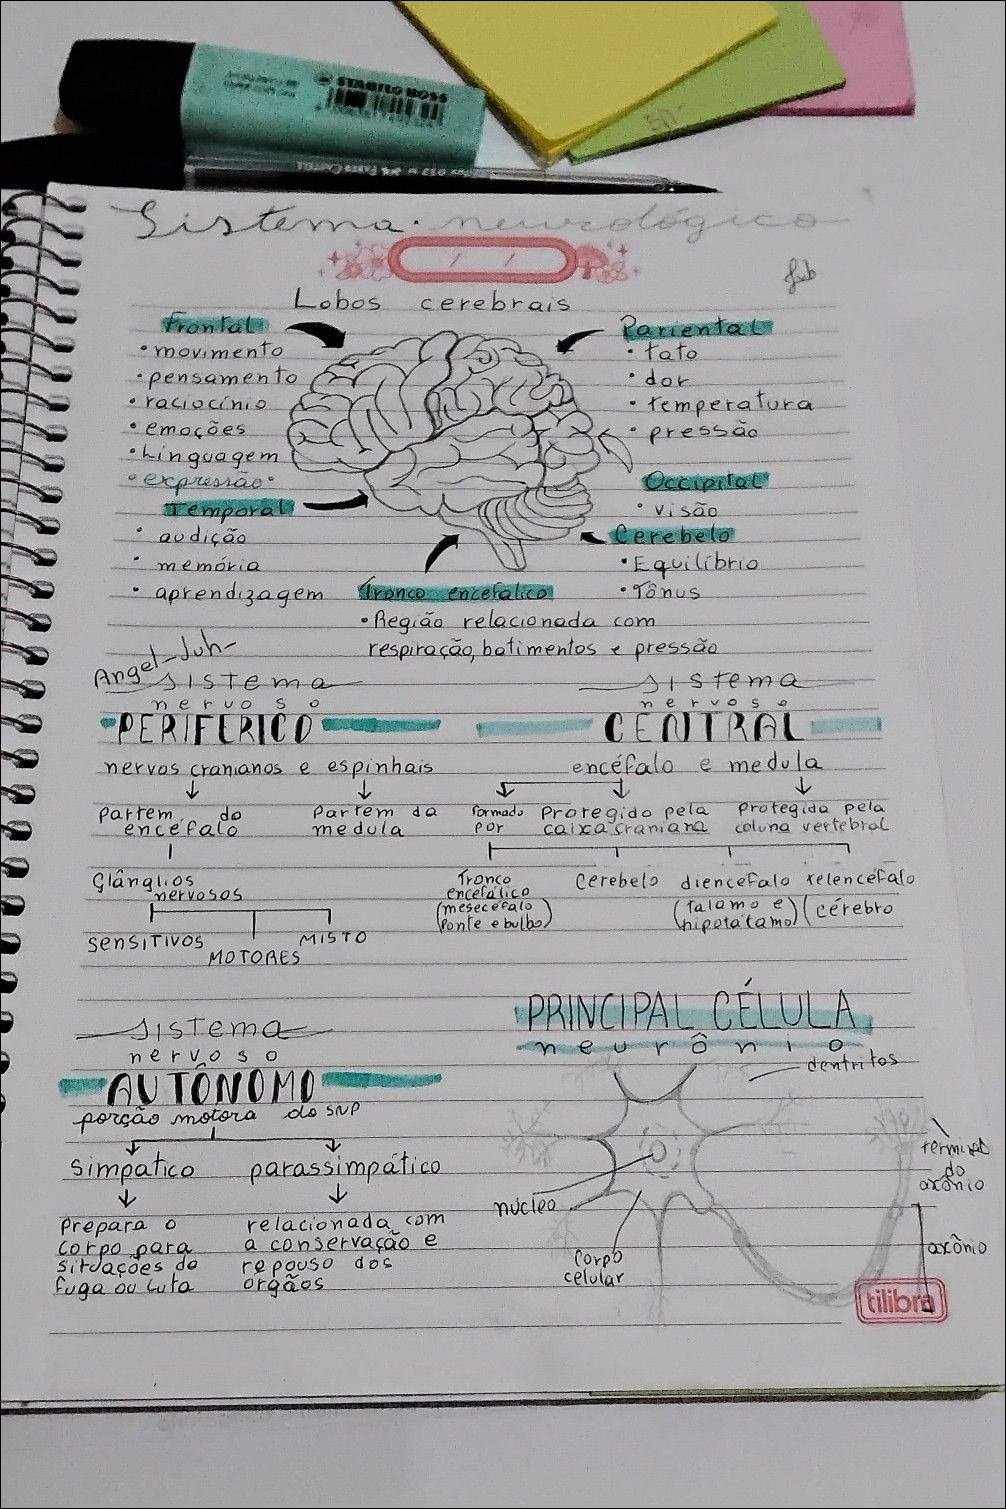 STABILO BOSS
Sistema neurológico
/ /
Lobos cerebrais
Frontal
• movimento
• pensamento
• raciocínio
• emoções
• Linguagem
• expressão •
Temporal
• audição
• memória
• aprendizagem
Pariental
• tato
• dor
• temperatura
• pressão
Occipital
• visão
Cerebelo
• Equilíbrio
• Tônus
Tronco encefálico
• Região relacionada com
respiração, batimentos e pressão
Angel-Juh-
sistema
nervoso
PERIFERICO
nervos cranianos e espinhais
Partem do
encéfalo
Partem da
medula
Glânglios
nervosos
SENSITIVOS
MOTORES
MISTO
sistema
nervoso
CENTRAL
encéfalo e medula
formado
por
Protegido pela
caixa craniana
Protegida pela
coluna vertebral
Tronco
encefálico
(mesecéfalo
Ponte e bulbo)
Cerebelo
diencefalo
(talamo e
hipotátamo)
telencéfalo
(cérebro
sistema
nervoso
AUTÔNOMO
porção motora do SNP
simpatico
Prepara o
corpo para
situações da
fuga ou luta
parassimpático
relacionada com
a conservação e
repouso dos
orgãos
PRINCIPAL CÉLULA
neurônio
dentritos
núcleo
corpo
celular
terminal
do
axônio
axônio
tilibra